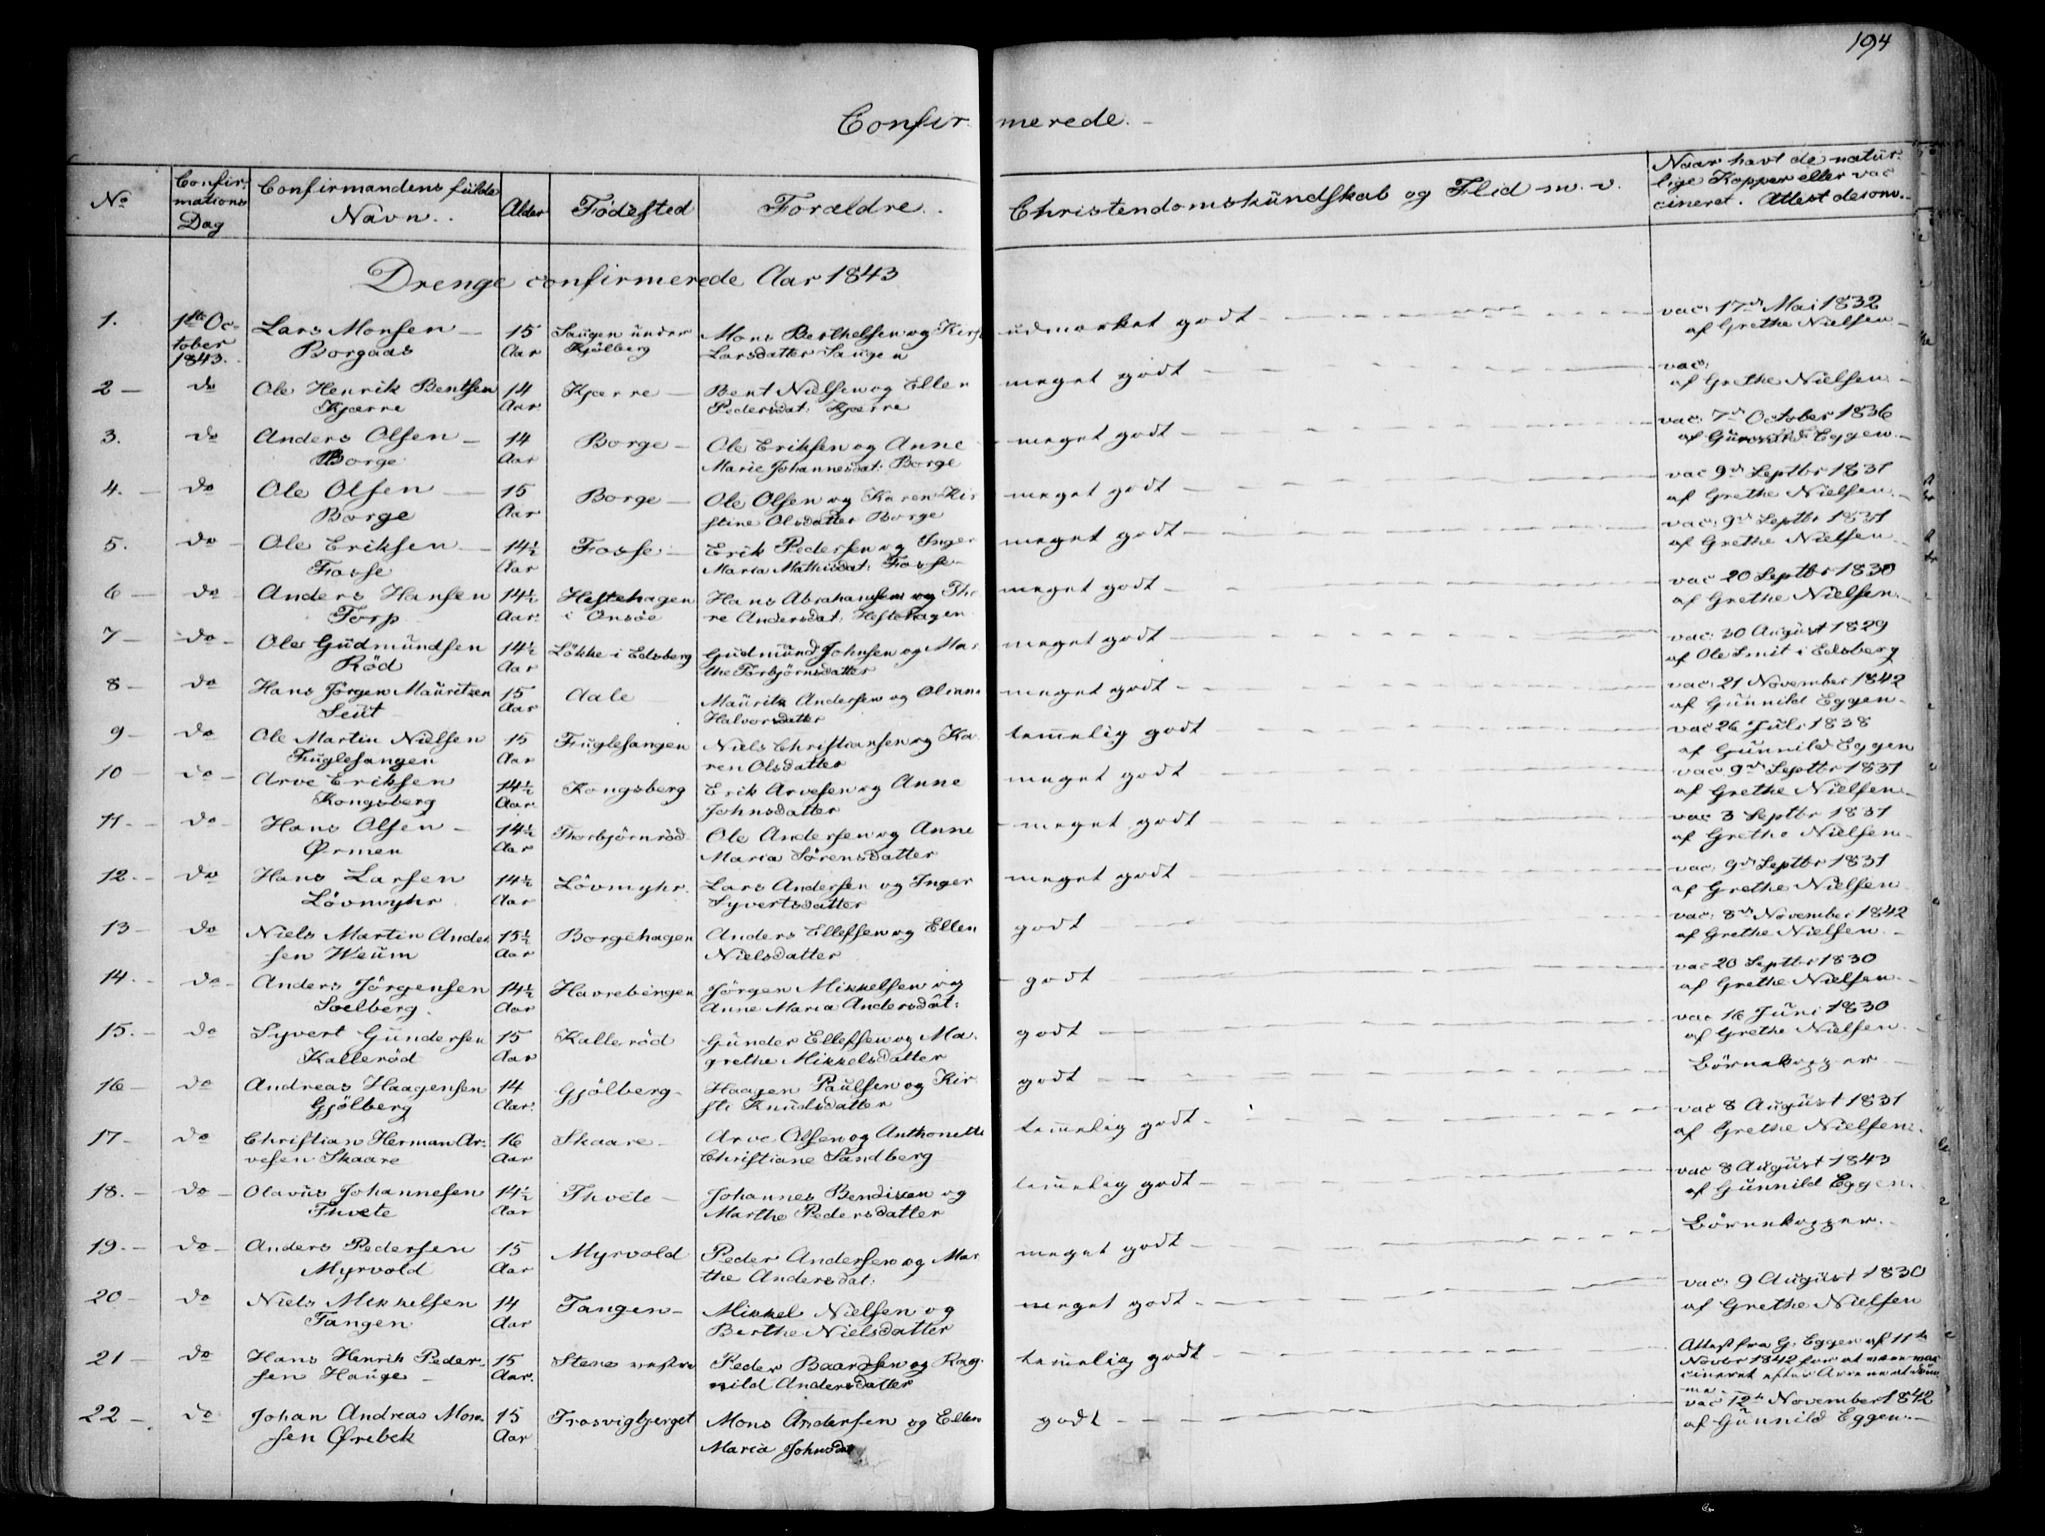 194
Confirmerede. -
No
Confirmations Dag
Confirmandens fulde Navn.
Alder
Födested
Forældre.
Christendomskundskab og Flid m. v.
Naar havt de naturlige Kopper eller vaccineret. Attest derom.
Drenge confirmerede Aar 1843
1. 1ste October 1843. Lars Monsen Borgaas 15 Aar Haugen under Kjölberg Mons Berthelsen og Kirsti Larsdatter Haugen udmærket godt vac: 17de Mai 1832 af Grethe Nielsen
2 do Ole Henrik Bentsen Kjærre 14 Aar Kjærre Bent Nielsen og Ellen Pedersdat: Kjærre meget godt vac: af Grethe Nielsen
3. do Anders Olsen Borge 14 Aar Borge Ole Eriksen og Anne Marie Johannesdat: Borge meget godt vac: 7de October 1836 af Gunnild Eggen
4. do Ole Olsen Borge 15 Aar Borge Ole Olsen og Karen Kirstine Olsdatter Borge meget godt vac 9de Septbr 1831 af Grethe Nielsen
5. do Ole Eriksen Fosse 14½ Aar Fosse Erik Pedersen og Inger Maria Mathisdat: Fosse meget godt vac: 9de Septbr 1831 af Grethe Nielsen
6 do Anders Hansen Torp 14½ Aar. Hestehagen i Onsöe Hans Abrahamsen og Thore Andersdat: Hestehagen meget godt vac 20 Septbr 1830 af Grethe Nielsen
7 do Ole Gudmundsen Röd 14½ Aar Lökke i Edsberg Gudmund Johnsen og Marthe Torbjörnsdatter meget godt vac: 30 August 1829 af Ole Smit i Edsberg
8 do Hans Jörgen Mauritzen Seut 15 Aar Aale Mauritz Andersen og Olinne Halvorsdatter meget godt vac: 21 November 1842 af Gunnild Eggen
9 do Ole Martin Nielsen Fuglesangen 15 Aar Fuglesangen Niels Christiansen og Karen Olsdatter temmelig godt vac 26 Juli 1838 af Gunnild Eggen
10 do Arve Eriksen Kongsberg 14½ Aar Kongsberg Erik Arvesen og Anne Johnsdatter meget godt vac: 9de Septbr 1831 af Grethe Nielsen
11. do Hans Olsen Ørmen 14½ Aar Thorbjörnröd Ole Andersen og Anne Maria Sörensdatter meget godt vac 3 Septbr 1831 af Grethe Nielsen
12. do Hans Larsen Lövmyhr 14½ Aar Lövmyhr. Lars Andersen og Inger Syvertsdatter meget godt vac: 9de Septbr 1831 af Grethe Nielsen
13 do Niels Martin Andersen Weum 15½ Aar Borgehagen Anders Ellefsen og Ellen Nielsdatter godt vac: 8de November 1842 af Grethe Nielsen
14. do Anders Jörgensen Soelberg. 14½ Aar Havrebingen Jörgen Mikkelsen og Anne Maria Andersdat: godt vac 20 Septbr 1830 af Grethe Nielsen
15. do Syvert Gundersen Kalleröd 15 Aar Kalleröd Gunder Ellefsen og Magrethe Mikkelsdatter godt vac 16 Juni 1830 af Grethe Nielsen
16 do Andreas Haagensen Gjölberg 14 Aar. Gjölberg Haagen Paulsen og Kirsti Knudsdatter godt Börnekopper
17 do Christian Herman Arvesen Skaare 16 Aar Skaare Arve Olsen og Anthonette Christiane Sandberg temmelig godt vac 8 August 1831 af Grethe Nielsen
18. do Olavus Johannesen Thvete 14½ Aar Thvete Johannes Bendixen og Marthe Pedersdatter temmelig godt vac 8 August 1843 af Gunnild Eggen
19. do Anders Pedersen Myrvold 15 Aar Myrvold Peder Andersen og Marthe Andersdat: meget godt Börnekopper.
20 do Niels Mikkelsen Tangen 14 Aar Tangen Mikkel Nielsen og Berthe Nielsdatter meget godt vac: 9 August 1830 af Grethe Nielsen
21 do Hans Henrik Pedersen Hauge 15 Aar. Stene Peder Baardsen og Ragnild Andersdatter temmelig godt Attest fra G. Eggen af 11te Novbr 1842 for at være vaccineret efter
22 do Johan Andreas Monsen Ørebek 15 Aar Trosvigbjerget Mons Andersen og Ellen Maria Johnsdat godt vac 12te November 1842 af Gunnild Eggen